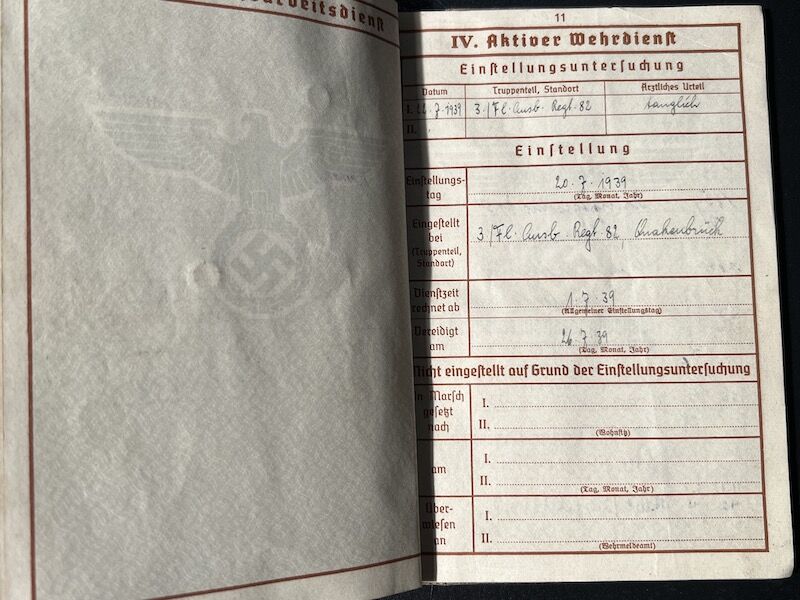 arbeitsdienst
11
IV. Aktiver Wehrdienst
Einstellungsuntersuchung
Datum Truppenteil, Standort Ärztliches Urteil
I. 22.7.1939 3./Fl. Ausb. Regt. 82 tauglich
II.
Einstellung
Einstellungs-
tag
20.7.1939
(Tag, Monat, Jahr)
Eingestellt
bei
(Truppenteil,
Standort)
3./Fl. Ausb. Regt. 82, Quakenbrück
Dienstzeit
rechnet ab
1.7.39
(Allgemeiner Einstellungstag)
Vereidigt
am
26.7.39
(Tag, Monat, Jahr)
Nicht eingestellt auf Grund der Einstellungsuntersuchung
In Marsch
gesetzt
nach
I.
II.
(Wohnsitz)
am
I.
II.
(Tag, Monat, Jahr)
Über-
wiesen
an
I.
II.
(Wehrmeldeamt)